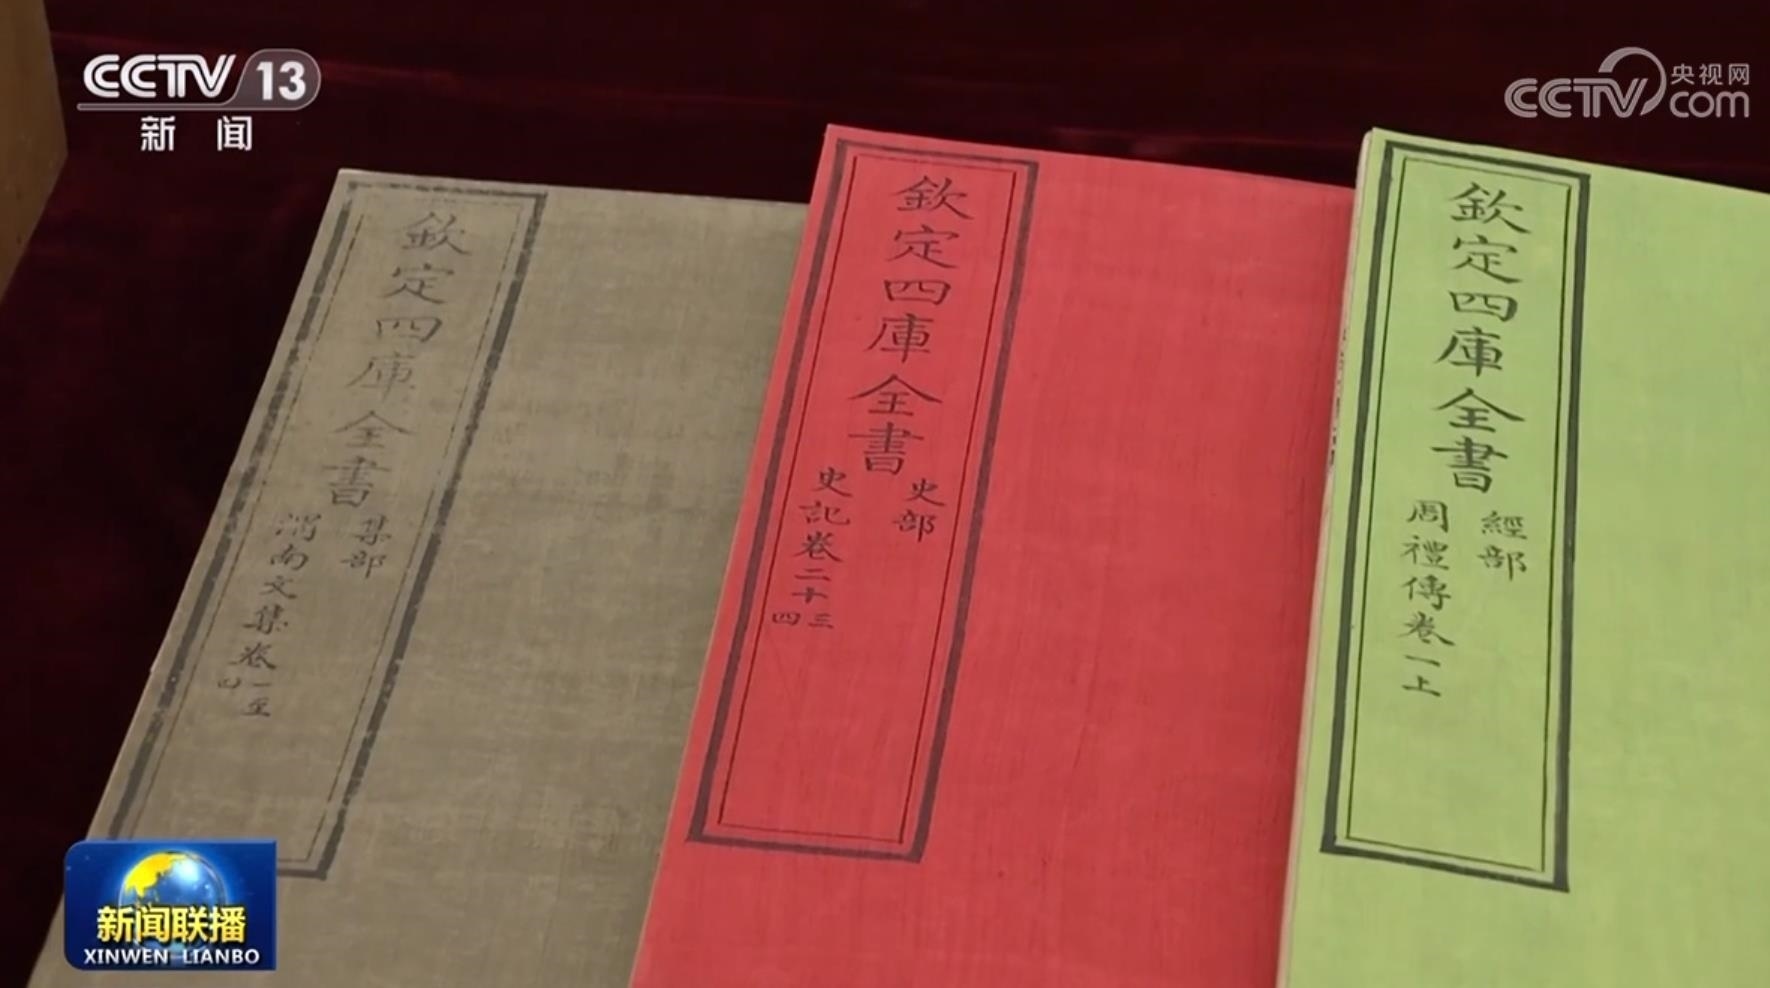 CCTV 13
新闻
CCTV 央视网
com
欽定四庫全書
集部
渭南文集卷一至
四
欽定四庫全書
史部
史記卷二十三
四
欽定四庫全書
經部
周禮傳卷一上
新闻联播
XINWEN LIANBO